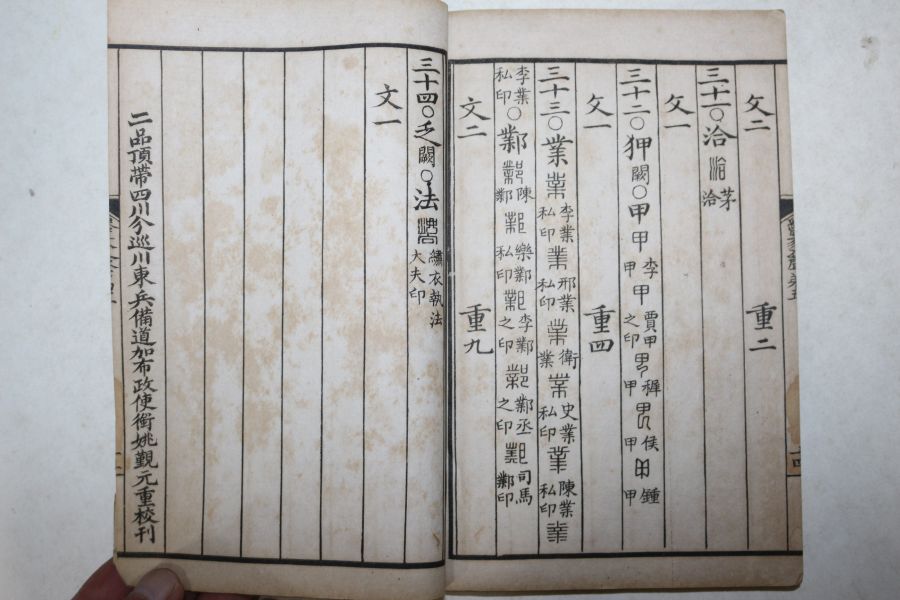 文二 重二
三十一〇洽 茅洽
文一
三十二〇狎闕〇甲 李甲 賈甲之印 稺甲 侯甲 鍾甲
文一 重四
三十三〇業 李業私印 邢業私印 衛業 史業私印 陳業私印
李業私印〇鄴 陳鄴 樂鄴私印 李鄴之印 鄴丞之印 司馬鄴印
文二 重九
三十四〇乏闕〇法 繡衣執法大夫印
文一
二品頂帶四川分巡川東兵備道加布政使銜姚覲元重校刊